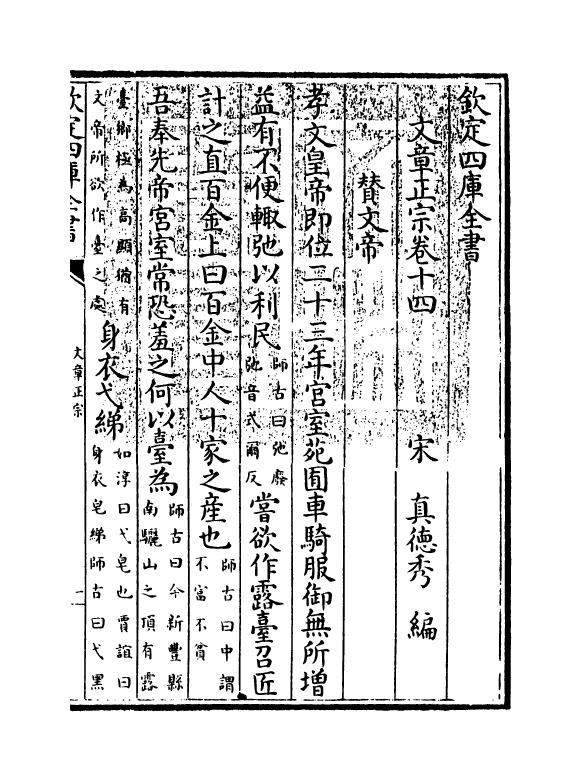 欽定四庫全書
文章正宗卷十四　　宋　真德秀　編
贊文帝
孝文皇帝即位二十三年宮室苑囿車騎服御無所增
益有不便輙弛以利民師古曰弛廢弛音式爾反嘗欲作露臺召匠
計之直百金上曰百金中人十家之産也師古曰中謂不富不貧
吾奉先帝宮室常恐羞之何以臺為師古曰今新豐縣南驪山之頂有露
臺鄉極為高顯猶有文帝所欲作臺之處身衣弋綈如淳曰弋皂也賈誼曰身衣皂綈師古曰弋黑
欽定四庫全書
文章正宗
一